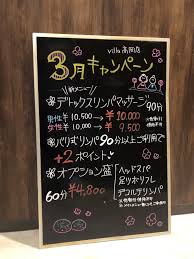 villa 高岡店
3月キャンペーン
新メニュー
デトックスリンパマッサージ 90分
男性 ¥10,500 → ¥10,000
女性 ¥10,000 → ¥9,500
バリ式リンパ90分以上ご利用で
+2ポイント
オプション盛
60分 ¥4,800
ヘッドスパ
足ツボリフレ
デコルテリンパ